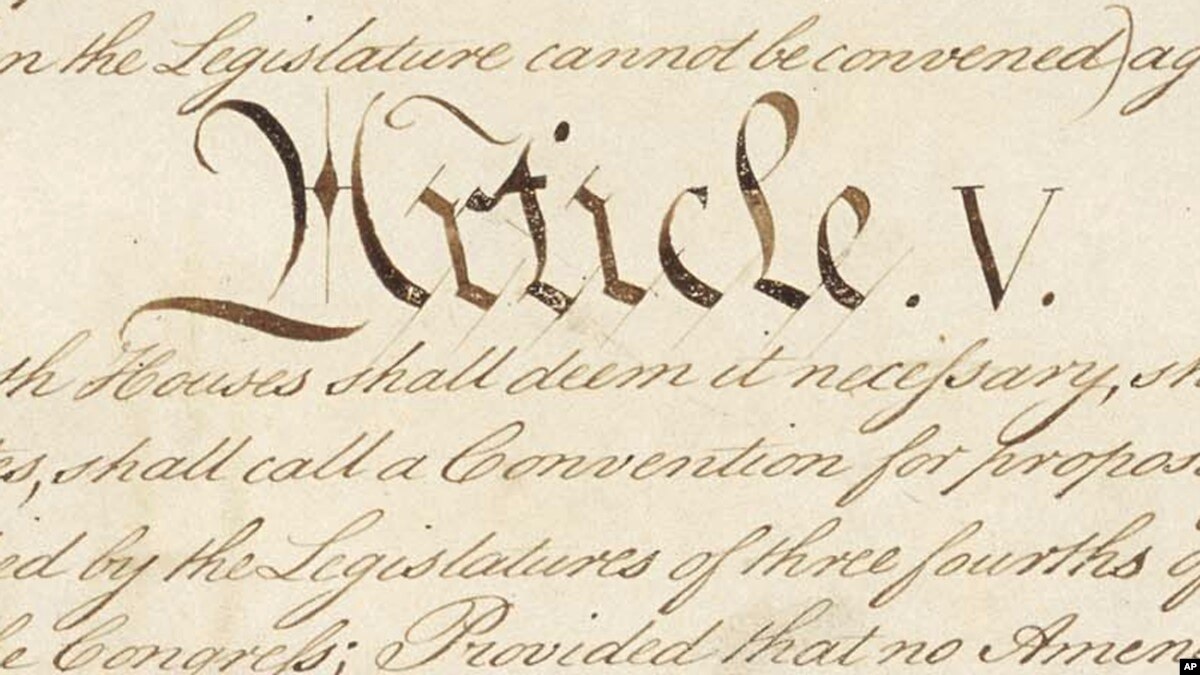 n the Legislature cannot be convened) ag
Article. V.
th Houses shall deem it neceſsary, sh
es, shall call a Convention for propos
ed by the Legislatures of three fourths of
e Congreſs; Provided that no Amen
AP